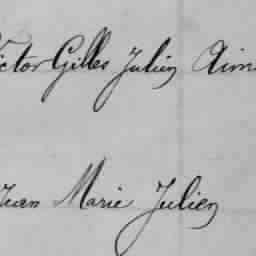 Victor Gilles Julien Aim
Jean Marie Julien